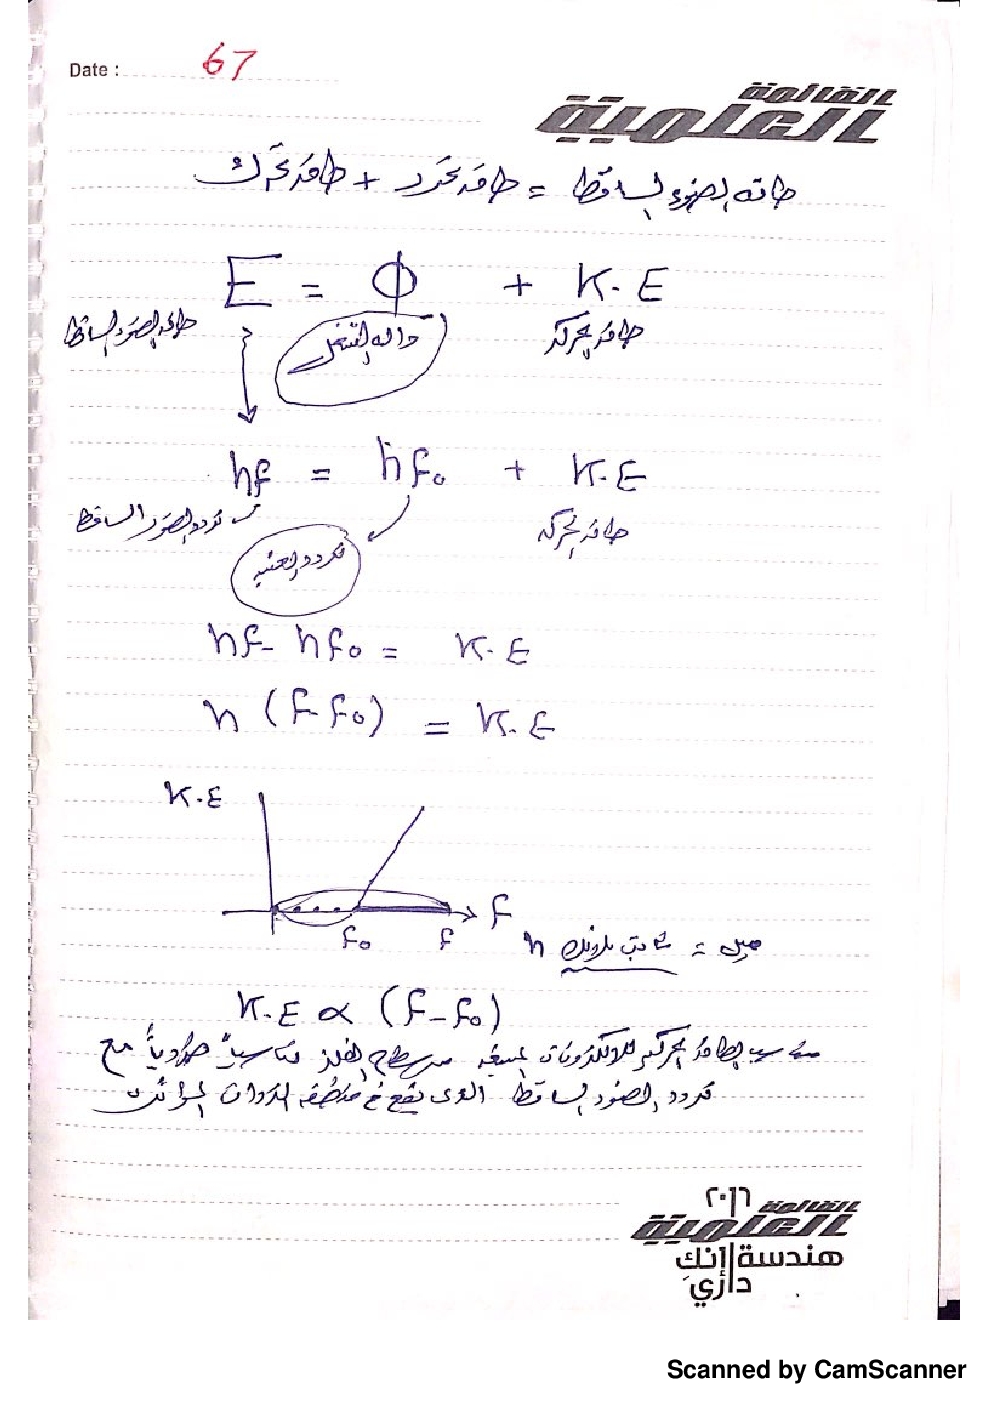 Date : 67
القائمة
العلمية
طاقة الضوء الساقط = طاقة تحرر + طاقة تحرك
E = Φ + K.E
طاقة الضوء الساقط دالة الشغل طاقة حركة
hf = hf₀ + K.E
تردد الضوء الساقط تردد العتبة طاقة حركة
hf - hf₀ = K.E
h (f - f₀) = K.E
K.E
f
f₀ f
ميل = ثابت بلانك h
K.E ∝ (f - f₀)
الطاقة الحركية للالكترونات المنبعثة من سطح الفلز تناسباً طردياً مع
تردد الضوء الساقط الذي يقع في منطقة الترددات
٢٠١٦ القائمة
العلمية
هندسة إنك
داري
Scanned by CamScanner